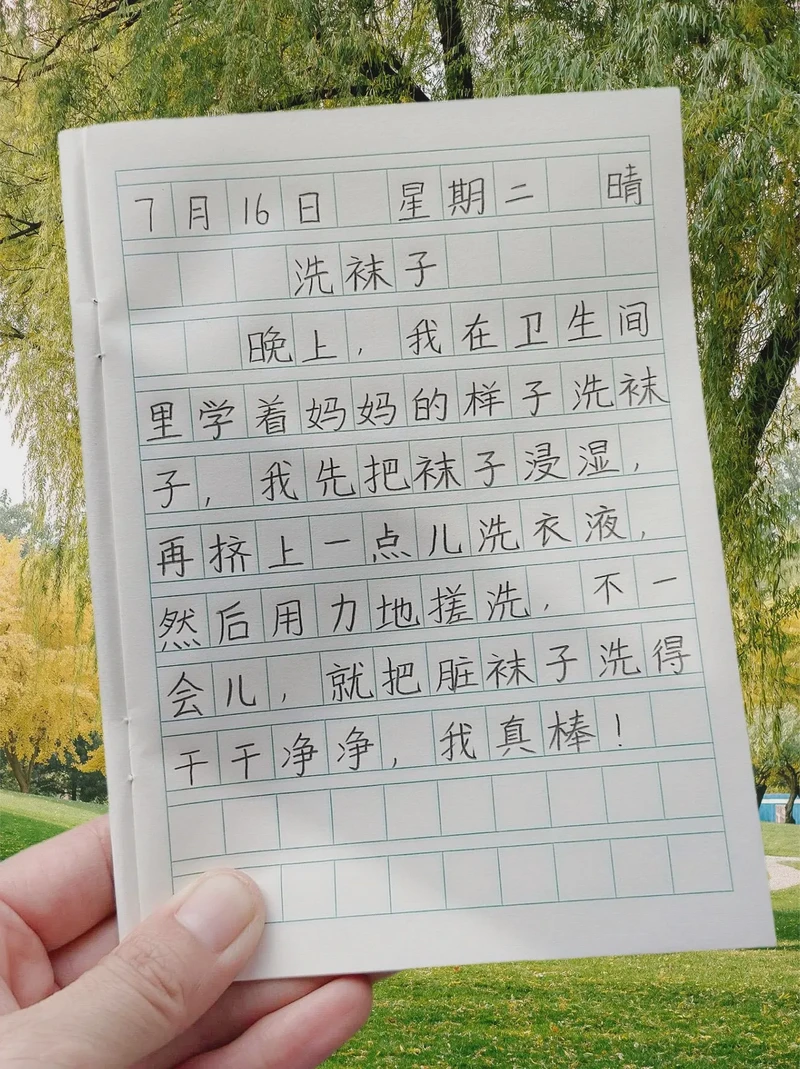 7月16日 星期二 晴
洗袜子
晚上，我在卫生间
里学着妈妈的样子洗袜
子，我先把袜子浸湿，
再挤上一点儿洗衣液，
然后用力地搓洗，不一
会儿，就把脏袜子洗得
干干净净，我真棒！